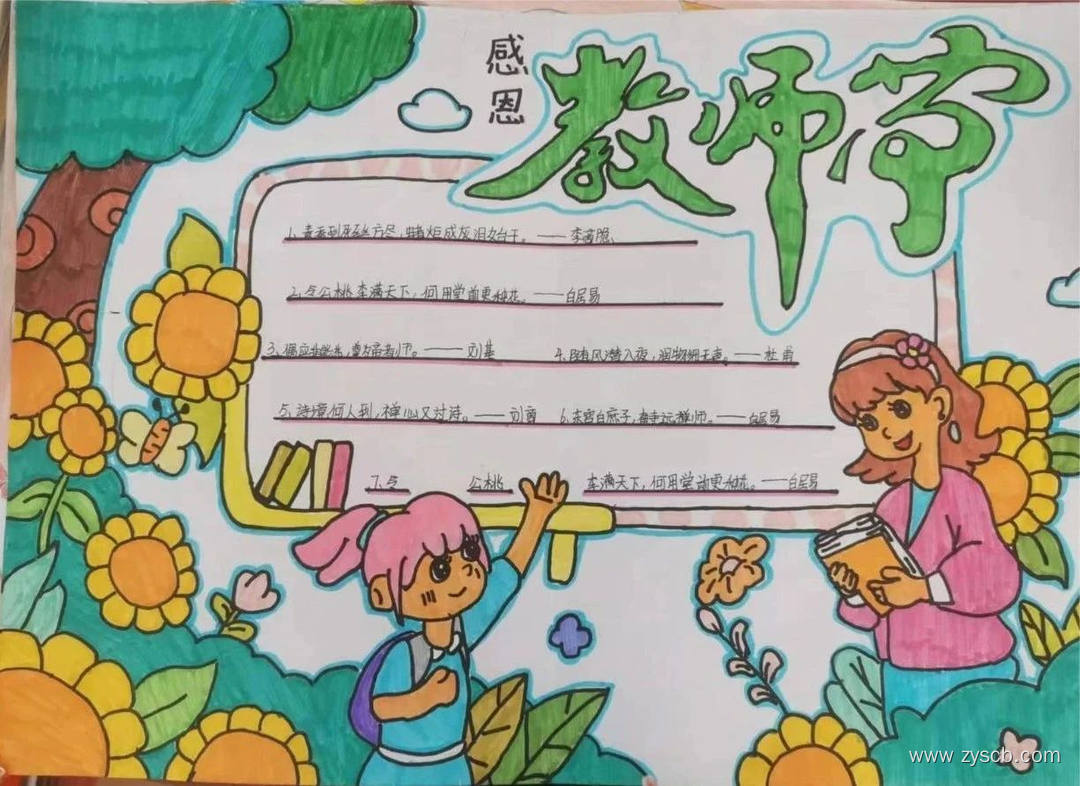 感恩
教师节
1、春蚕到死丝方尽，蜡炬成灰泪始干。——李商隐
2、令公桃李满天下，何用堂前更种花。——白居易
3、 ——刘基
4、随风潜入夜，润物细无声。——杜甫
5、诗情何人到，禅心又过诗。——刘商
6、东宫白庶子，南寺远禅师。——白居易
7、令公桃李满天下，何用堂前更种花。——白居易
www.zyscb.com